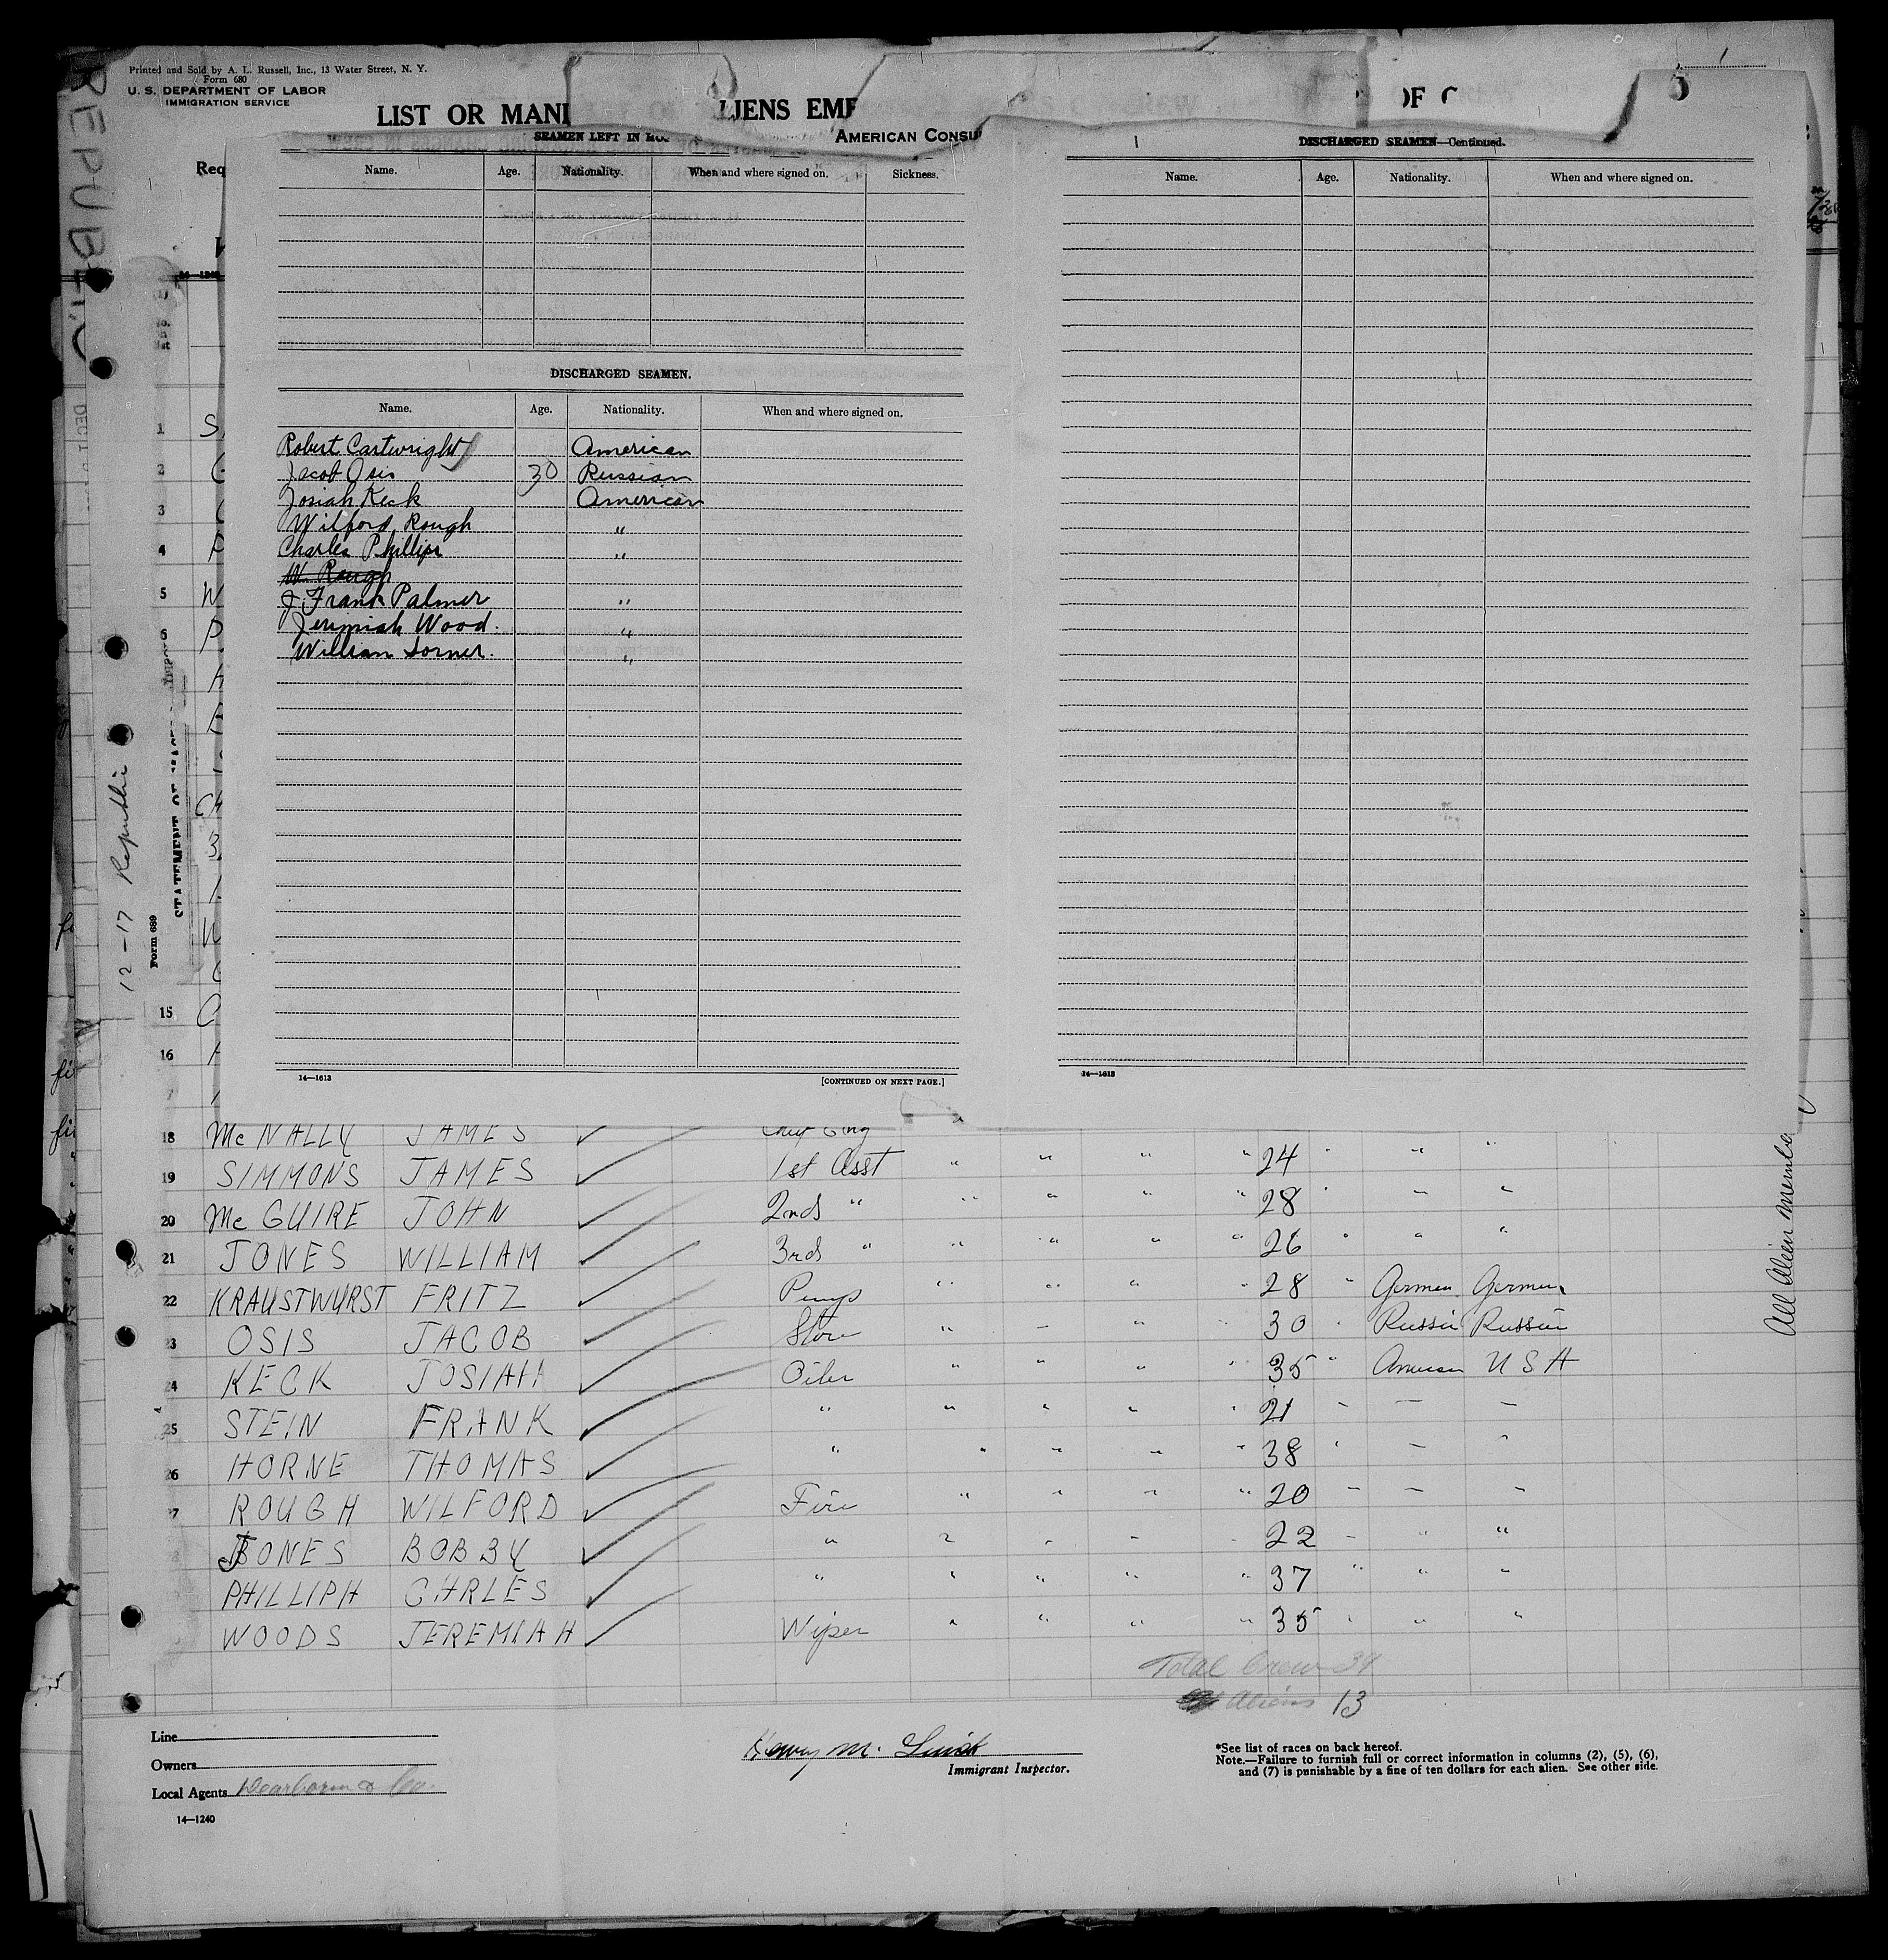 Printed and Sold by A. L. Russell, Inc., 13 Water Street, N. Y.
Form 680
U. S. DEPARTMENT OF LABOR
IMMIGRATION SERVICE
LIST OR MANI
LIENS EMP
OF C
SEAMEN LEFT IN HOS
AMERICAN CONSU
Req
REPUBLIC
Name. Age. Nationality. When and where signed on. Sickness.
DISCHARGED SEAMEN.
Name. Age. Nationality. When and where signed on.
Robert Cartwright American
Jacob Osis 30 Russian
Josiah Keck American
Wilford Rough "
Charles Phillips "
W. Rough
J. Frank Palmer "
Jerimiah Wood. "
William "
14—1613 [CONTINUED ON NEXT PAGE.]
DISCHARGED SEAMEN—Continued.
Name. Age. Nationality. When and where signed on.
14—1613
12-17 Republic
Form 689
STATEMENT OF
1 S
2
3
4 P
5 W
6 P
15
16
18 McNALLY JAMES
19 SIMMONS JAMES 1st Asst " " " " 24 " " "
20 McGUIRE JOHN 2nd " " " " " 28 " " "
21 JONES WILLIAM 3rd " " " " " 26 " " "
22 KRAUSTWURST FRITZ Pump " " " " 28 " German German
23 OSIS JACOB Store " " " " 30 " Russia Russia
24 KECK JOSIAH Oiler " " " " 35 " American USA
25 STEIN FRANK " " " " " 21 " " "
26 HORNE THOMAS " " " " " 38 " " "
27 ROUGH WILFORD Fire " " " " 20 " " "
JONES BOBBY " " " " " 22 " " "
PHILLIPH CHRLES " " " " " 37 " " "
WOODS JEREMIAH Wiper " " " " 35 " " "
Total Crew 34
Aliens 13
All Alien Membe
Line
Owners
Local Agents Dearborn & Co.
14—1240
Henry M.
Immigrant Inspector.
*See list of races on back hereof.
Note.—Failure to furnish full or correct information in columns (2), (5), (6),
and (7) is punishable by a fine of ten dollars for each alien. See other side.